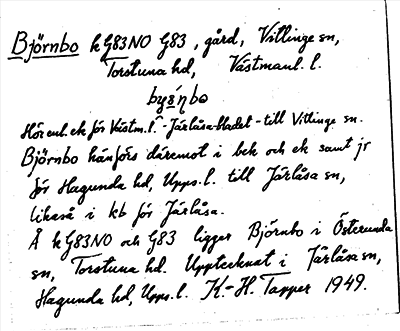 Björnbo k G83NO G83, gård, Vittinge sn,
Torstuna hd, Västmanl. l.
Hör enl. ek för Västm. l. - Järlåsa-bladet - till Vittinge sn.
Björnbo hänförs däremot i bek och ek samt jr
för Hagunda hd, Upps. l. till Järlåsa sn,
likaså i kb för Järlåsa.
Å k G83NO och G83 ligger Björnbo i Österunda
sn, Torstuna hd. Upptecknat i Järlåsa sn,
Hagunda hd, Upps. l. K-H. Tapper 1949.